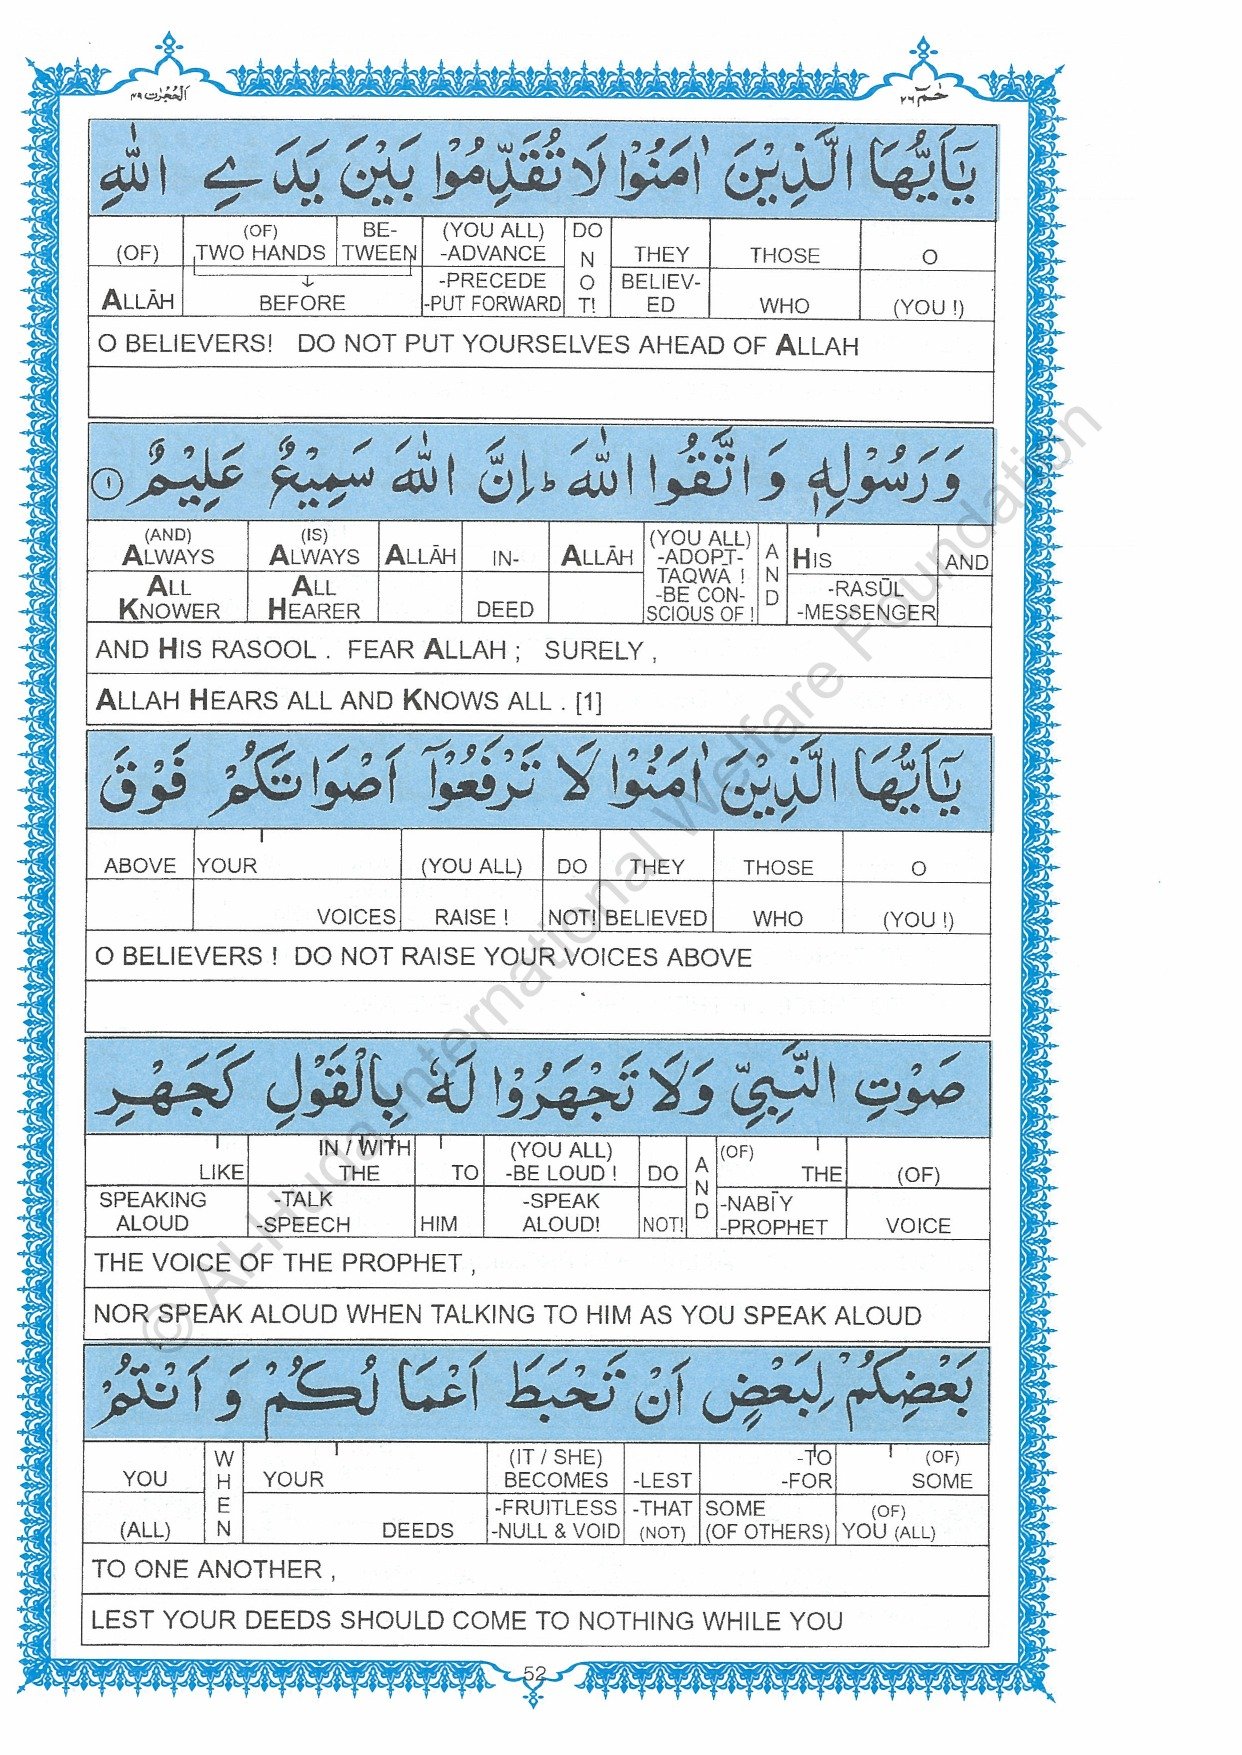 الحجرت ٤٩
حم ٢٦
يٰۤاَيُّهَا الَّذِيْنَ اٰمَنُوْا لَا تُقَدِّمُوْا بَيْنَ يَدَيِ اللّٰهِ
(OF) (OF) BE- (YOU ALL) DO
TWO HANDS TWEEN -ADVANCE N THEY THOSE O
ALLĀH ↓ BEFORE -PRECEDE O BELIEV- WHO (YOU !)
-PUT FORWARD T! ED
O BELIEVERS! DO NOT PUT YOURSELVES AHEAD OF ALLAH
وَرَسُوْلِهٖ وَاتَّقُوا اللّٰهَ ؕ اِنَّ اللّٰهَ سَمِيْعٌ عَلِيْمٌ ١
(AND) (IS) (YOU ALL)
ALWAYS ALWAYS ALLĀH IN- ALLĀH -ADOPT- A HIS AND
ALL ALL TAQWĀ ! N -RASŪL
KNOWER HEARER DEED -BE CON- D -MESSENGER
SCIOUS OF !
AND HIS RASOOL . FEAR ALLAH ; SURELY ,
ALLAH HEARS ALL AND KNOWS ALL . [1]
يٰۤاَيُّهَا الَّذِيْنَ اٰمَنُوْا لَا تَرْفَعُوْۤا اَصْوَاتَكُمْ فَوْقَ
ABOVE YOUR (YOU ALL) DO THEY THOSE O
VOICES RAISE ! NOT! BELIEVED WHO (YOU !)
O BELIEVERS ! DO NOT RAISE YOUR VOICES ABOVE
صَوْتِ النَّبِيِّ وَلَا تَجْهَرُوْا لَهٗ بِالْقَوْلِ كَجَهْرِ
IN / WITH (YOU ALL) A (OF)
LIKE THE TO -BE LOUD ! DO N THE (OF)
SPEAKING -TALK -SPEAK D -NABĪY
ALOUD -SPEECH HIM ALOUD! NOT! -PROPHET VOICE
THE VOICE OF THE PROPHET ,
NOR SPEAK ALOUD WHEN TALKING TO HIM AS YOU SPEAK ALOUD
بَعْضِكُمْ لِبَعْضٍ اَنْ تَحْبَطَ اَعْمَالُكُمْ وَاَنْتُمْ
W (IT / SHE) -TO (OF)
YOU H YOUR BECOMES -LEST -FOR SOME
E -FRUITLESS -THAT SOME (OF)
(ALL) N DEEDS -NULL & VOID (NOT) (OF OTHERS) YOU (ALL)
TO ONE ANOTHER ,
LEST YOUR DEEDS SHOULD COME TO NOTHING WHILE YOU
52
© Al-Huda International Welfare Foundation